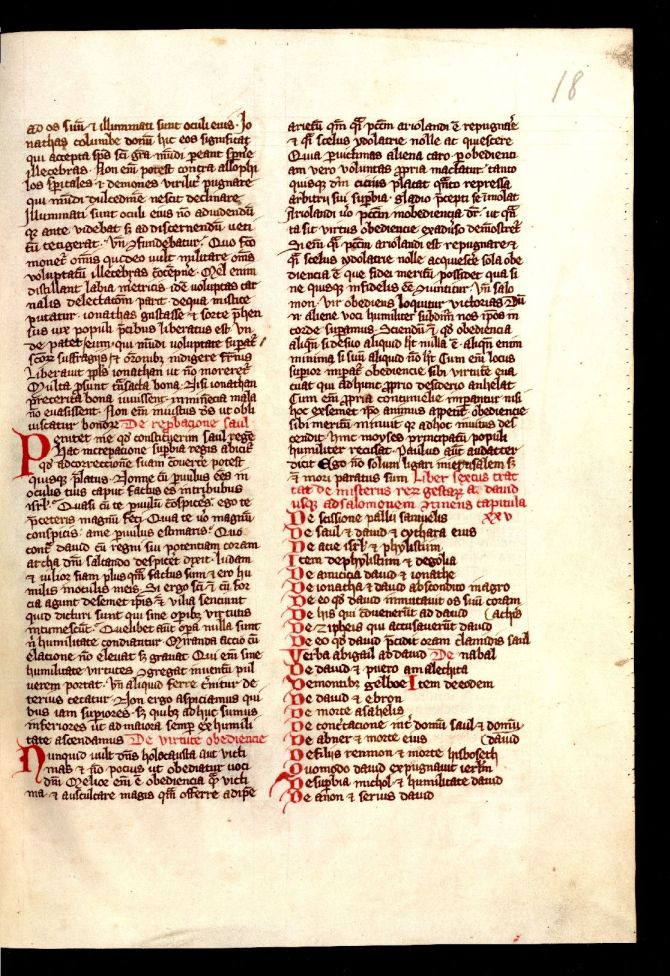 18
ad os suū ⁊ illuminati sunt oculi eius · Jo
nathas columbe donū hic eos significat
qui accepta sps sci gra mūdi
illecebras · Non em potest contra allophi
los spitales ⁊ demones virilit pugnare
qui mūdi dulcedinē nescit declinare
Illuminati sunt oculi eius nō ad uidendū
q ante videbat s ad discernendū ueti
tū tetigerat · Vn
monet omis quod eo vult militare
voluptatū illecebras Mel enim
distillant labia metricis · id voluptas car
nalis delectacom parit dequa mistice
putatur · ionathas gustasse ⁊ sorte phen
sus uxe populi pcibus liberatus est Vn
de patet eum qui mūdi voluptate supat
scor suffragijs ⁊ orōnibz indigere
Liberauit ppls ionathan ut nō moreret
Multa psunt bona Nisi ionathan
preterita bona iuuissent mala
nō euasissent · Non em iniustus ds ut obli
uiscatur bonor De repbacione saul
Penitet me qd constituerim saul rege
hac increpacione supbia regis abicit
qd ad correctionē suam potest
quisqz platus · Nonne cū puulus ees in
oculis tuis caput factus es in tribubus
isrl · Quasi cū te puulū cospices · ego te
p ceteris magnū feci Quia te uo magnū
conspicis · a me puulus estimaris · Quo
cont dauid cū regni sui potentiam coram
archa dni saltando despicet dixit · ludam
⁊ vilior fiam plus qm factus sum ⁊ ero hu
milis inoculis meis · Si ergo sci ⁊ cū for
cia agunt de semet ipis ⁊ vilia senciunt
quid dicturi sunt qui sine opibz virtutis
intumescūt · Quelibet aut opa nulla sunt
n humilitate condiantur Miranda accio cū
elacione nō eleuat s grauat Qui em sine
humilitate virtutes ꝯgregat inuentū pul
uerem portat · Vn aliquid ferre
terius cecatur · Non ergo aspiciamus qui
bus iam supiores · s quibz adhuc sumus
inferiores ut ad maiora semp ex humili
tate ascendamus De virtute obediencie
Nunquid uult dns holocausta aut victi
mas ⁊ nō pocius ut obediatur uoci
dni Melior em ē obediencia qm victi
ma · ⁊ auscultare magis qm offerre adipē
arietū qm qsi pctm ariolandi ē repugnare
⁊ qsi scelus ydolatrie nolle acquiescere
Quia p victimas aliena caro p obedienti
am vero voluntas ppria mactatur · tanto
quisqz dm cicius placat qnto repressa
arbitrij sui supbia · gladio pcepti se īmolat
Ariolandi uo pctm inobediencia dr · ut qn
ta sit virtus obediencie ex aduiso demostret
Si em qsi pctm ariolandi est repugnare ⁊
qsi scelus ydolatrie nolle acquiesce sola obe
diencia ē que fidei meritū possidet qua si
ne quisqz infidelis ēe Vn salo
mon · Vir obediens loquitur victorias
n aliene voci humiliter subdim nos ipos in
corde supamus · Sciendū ē qd obediencia
aliqn si de suo aliquid ht nulla ē · aliqn enim
minima si suū aliquid nō ht Cum em locus
supior obediencie sibi virtutē eua
cuat qui ad hunc pprio desiderio anhelat
Cum em ppria contumelie nisi
hoc ex semet ipo animus appetit · obediencie
sibi meritū minuit qr ad hoc inuitus des
cendit · hinc moyses principatū populi
humiliter recusat · Paulus aut audacter
dicit Ego nō solum ligari in ierusalem s
⁊ mori paratus sum Liber sextus trac
tat de misterijs rez gestaz a dauid
usqz ad salomonem Xinens capitula
De scissione pallij samuelis xxv
De saul ⁊ dauid ⁊ cythara eius
De acie isrl ⁊ phylistijm
Item de phylistijm ⁊ de golia
De amicicia dauid ⁊ ionathe
De ionatha ⁊ dauid abscondito in agro
De eo qd dauid inmutauit os suū coram
De his qui cōuenerūt ad dauid (achis
De zipheis qui accusauerūt dauid
De eo qd dauid pcidit oram clamidis saul
Verba abigail ab dauid De nabal
De dauid ⁊ puero amalechita
De montibz gelboe Item de eodem
De dauid ⁊ ebron
De morte asahelis
De conētacione int domū saul ⁊ domū
De abner ⁊ morte eius (dauid
De filijs remmon ⁊ morte hisboseth
Quomodo dauid expugnauit ierlm
De supbia michol ⁊ humilitate dauid
De amon ⁊ seruis dauid